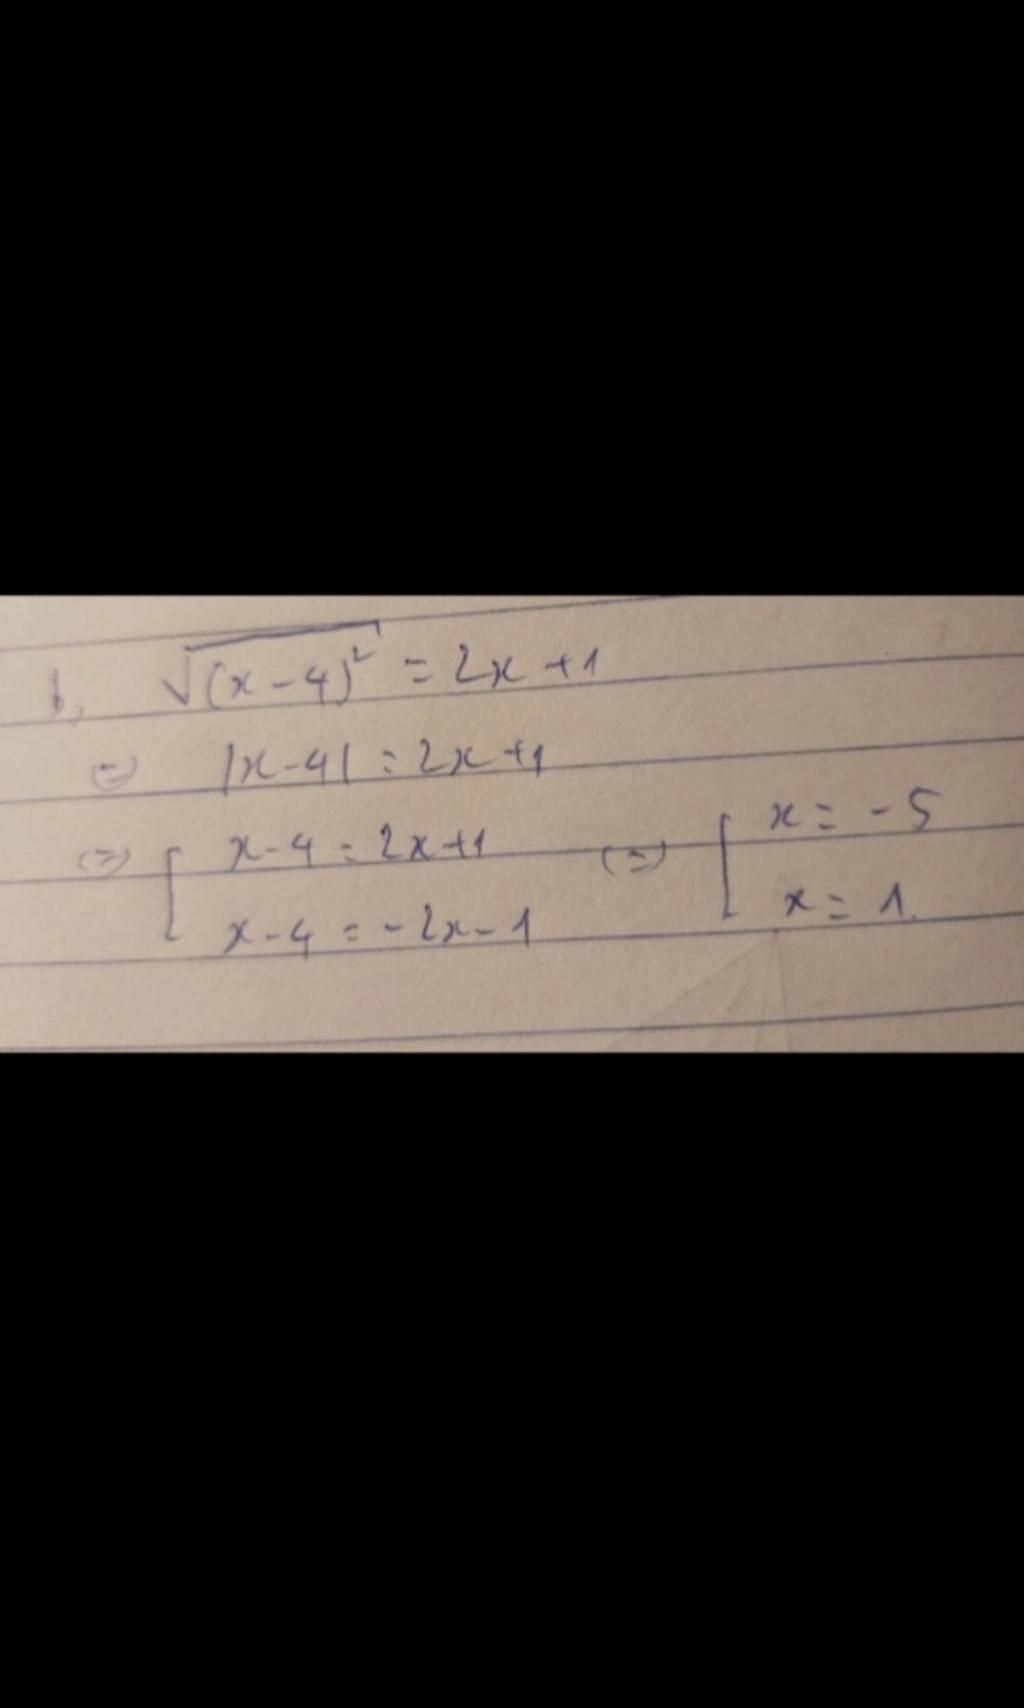 b, √(x-4)² = 2x+1
(=) |x-4| = 2x+1
(=) [ x-4 = 2x+1 (=) [ x = -5
x-4 = -2x-1 x = 1.